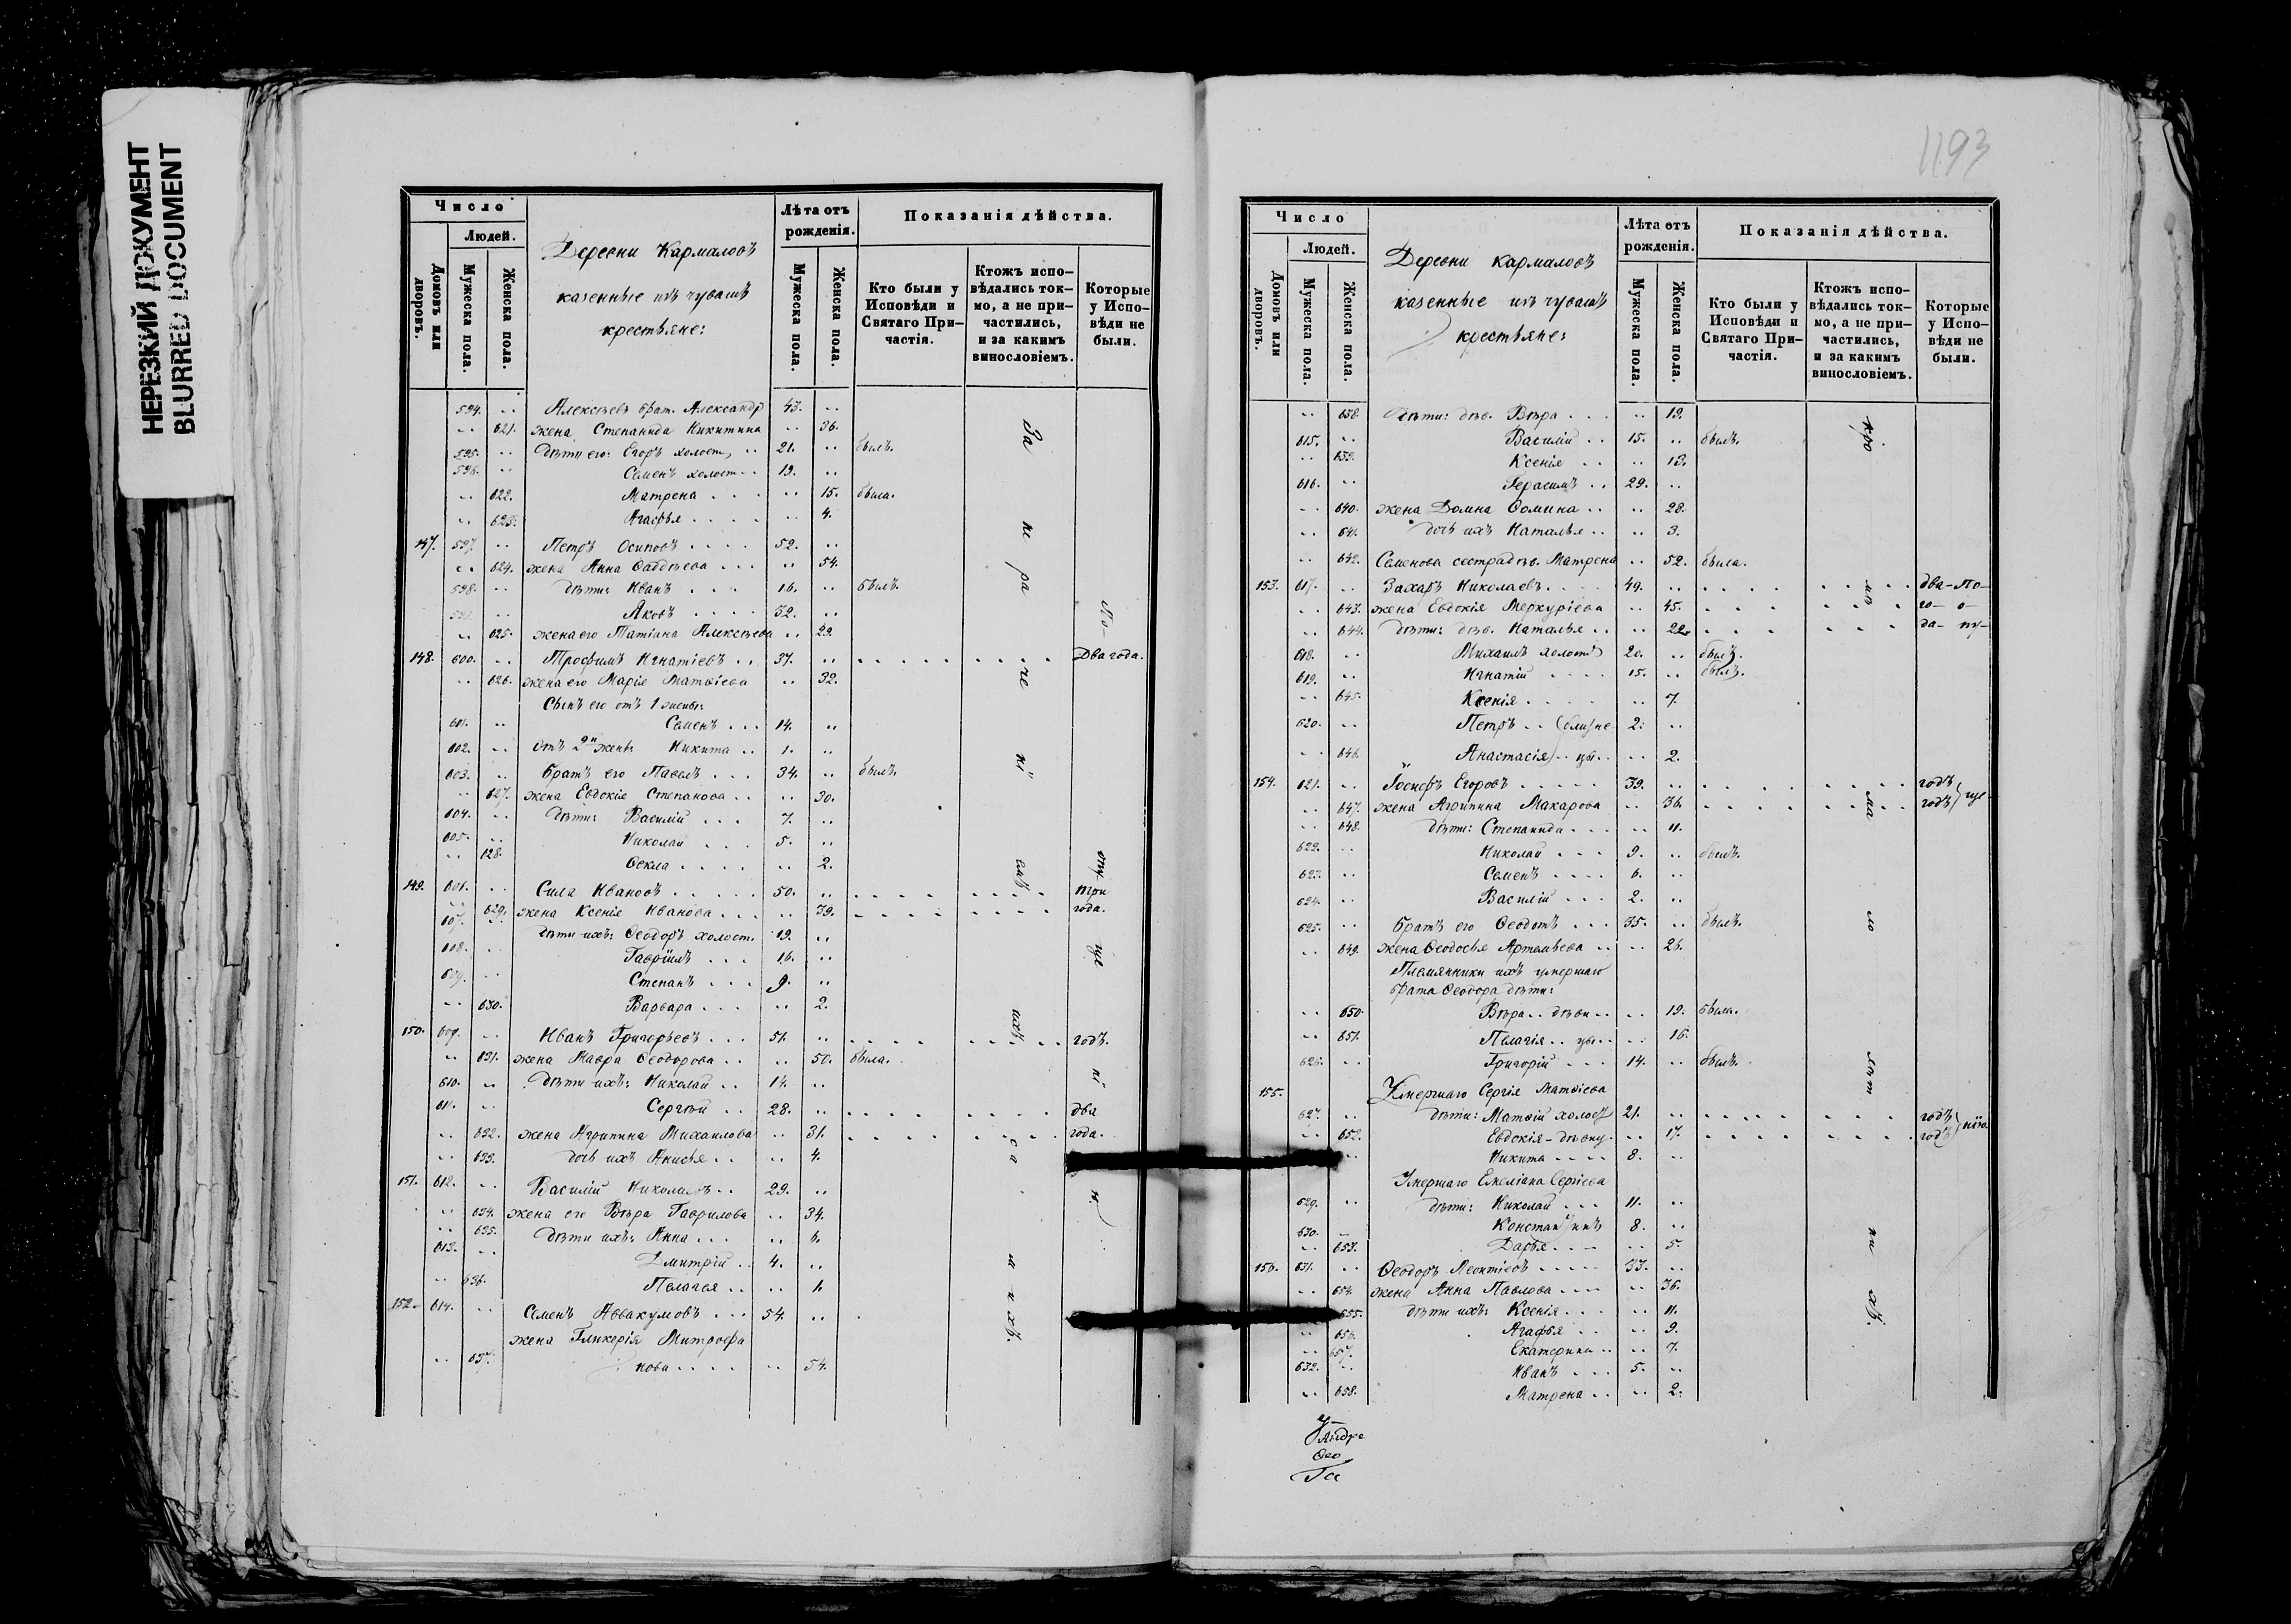 НЕРЕЗКИЙ ДОКУМЕНТ
BLURRED DOCUMENT
Число
Людей.
Домовъ или дворовъ.
Мужеска пола.
Женска пола.
Деревни Кармаловъ
казенные изъ чувашъ
крестьяне:
Лѣта отъ рожденія.
Мужеска пола.
Женска пола.
Показанія дѣйства.
Кто были у Исповѣди и Святаго При-частія.
Ктожъ испо-вѣдались ток-мо, а не при-частились, и за какимъ винословіемъ.
Которые у Испо-вѣди не были.
594. .. Алексѣевъ брат. Александр 43. ..
.. 621. жена Степанида Никитина .. 36.
595. .. дѣти его: Егоръ холост, .. 21. .. былъ.
596. .. Семенъ холост .. 19. ..
.. 622. Матрена . . . .. 15. была.
.. 623. Агафья . . . . .. 4.
147. 597. .. Петръ Осиповъ . . . . 52. ..
.. 624. жена Анна Фаддѣева . . . .. 54.
598. .. дѣти: Иванъ . . . 16. .. былъ.
.. Яковъ . . . . 32. ..
.. 625. жена его Татіана Алексѣева .. 29.
148. 600. .. Трофимъ Игнатіевъ . . 37. .. . . . . . . . . . Два года.
.. 626. жена его Марія Матвіева .. 32.
Сынъ его отъ 1 жены:
601. .. Семенъ . . . 14. ..
602. .. отъ 2й жены Никита .. 1. ..
603. .. Братъ его Павелъ . . . 34. .. былъ.
.. 627. жена Евдокія Степанова . . .. 30.
604. .. дѣти: Василій . . . 7. ..
605. .. Николай . . . 5. ..
.. 628. Ѳекла . . . . .. 2.
149. 601. .. Сила Ивановъ . . . . . 50. .. . . . . . . . . три
.. 629. жена Ксенія Иванова . . . .. 39. . . . . . . . . года.
607. .. дѣти ихъ: Ѳеодоръ холост. 19. ..
608. .. Гавріилъ . . . 16. ..
609. .. Степанъ . . . 9. ..
.. 630. Варвара . . . .. 2.
150. 609. .. Иванъ Григорьевъ . . 51. .. . . . . . . . . . годъ.
.. 631. жена Мавра Ѳеодорова . . .. 50. была.
610. .. дѣти ихъ: Николай . . 14. ..
611. .. Сергѣй . . 28. .. . . . . . . . . два
.. 632. жена Агрипина Михаилова .. 31. . . . . . . . . . года.
.. 633. дочь ихъ Анисья . . .. 4.
151. 612. .. Василій Николаевъ . . 29. ..
.. 634. жена его Вѣра Гаврилова .. 34.
.. 635. дѣти ихъ: Анна . . . .. 6.
613. .. Дмитрій . . 4. ..
.. 636. Пелагея . . .. 1.
152. 614. .. Семенъ Аввакумовъ . . . 54. ..
жена Гликерія Митрофа
.. 637. нова . . . . .. 54.
1193
Число
Людей.
Домовъ или дворовъ.
Мужеска пола.
Женска пола.
Деревни Кармаловъ
казенные изъ чувашъ
крестьяне:
Лѣта отъ рожденія.
Мужеска пола.
Женска пола.
Показанія дѣйства.
Кто были у Исповѣди и Святаго При-частія.
Ктожъ испо-вѣдались ток-мо, а не при-частились, и за какимъ винословіемъ.
Которые у Испо-вѣди не были.
.. 638. дѣти: дѣв. Вѣра . . . .. 19.
615. .. Василій . . 15. .. былъ.
.. 639. Ксенія . . .. 13.
616. .. Герасимъ . . 29. ..
.. 640. жена Домна Ѳомина . . .. 28.
.. 641. дочь ихъ Наталья . . .. 3.
.. 642. Семенова сестра дѣв. Матрена .. 52. была.
153. 617. .. Захаръ Николаевъ . . . . 49. .. . . . . . . . . два-по-
.. 643. жена Евдокія Меркуріева .. 45. . . . . . . . го-о-
.. 644. дѣти: дѣв. Наталья . . .. 22. . . . . . . . да-пу-
618. .. Михаилъ холост 20. .. былъ.
619. .. Игнатій . . . . 15. .. былъ.
.. 645. Ксенія . . . . .. 7.
620. .. Петръ . . (близне 2. ..
.. 646. Анастасія) . . цы . . .. 2.
154. 621. .. Іосифъ Егоровъ . . . . . 39. .. . . . . . . . . годъ
.. 647. жена Агрипина Макарова .. 36. . . . . . . . . годъ } ще-
.. 648. дѣти: Степанида . . . .. 11.
622. .. Николай . . . 9. .. былъ.
623. .. Семенъ . . . . 6. ..
624. .. Василій . . . 2. ..
625. .. Братъ его Ѳеодотъ . . . 35. .. былъ.
.. 649. жена Ѳеодосья Артемьева . . .. 26.
Племянники ихъ умершаго
брата Ѳеодора дѣти:
.. 650. Вѣра . . дѣви . . .. 19. была.
.. 651. Пелагія . . цы . . .. 16.
626. .. Григорій . . . 14. .. былъ.
155. Умершаго Сергія Матвіева
627. .. дѣти: Матвій холост 21. .. . . . . . . . годъ
.. 652. Евдокія-дѣвиц. .. 17. . . . . . . . . годъ } нію
.. Никита . . . . 8. ..
Умершаго Емеліана Сергіева
629. .. дѣти: Николай . . . 11. ..
630. .. Константинъ 8. ..
.. 653. Дарья . . . .. 5.
156. 631. .. Ѳеодоръ Леонтіевъ . . . . . 33. ..
.. 654. жена Анна Павлова . . . .. 36.
655. дѣти ихъ: Ксенія . . . .. 11.
.. 656. Агафья . . .. 9.
.. 657. Екатерина . . .. 7.
632. .. Иванъ . . . 5. ..
.. 658. Матрена . . .. 2.